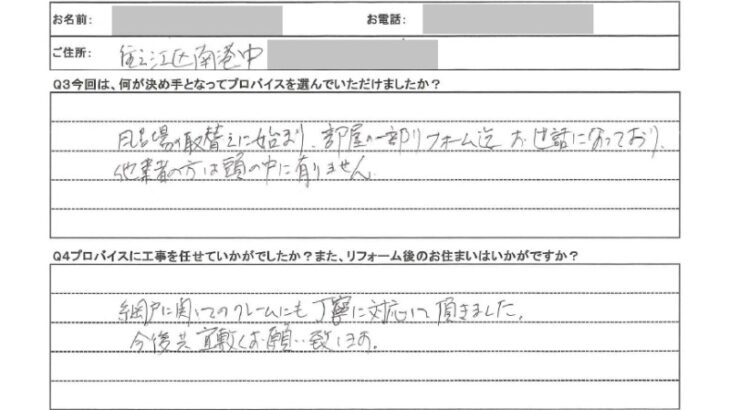 お名前:
お電話:
ご住所: 住之江区南港中
Q3今回は、何が決め手となってプロバイスを選んでいただけましたか？
風呂場の取替えに始まり、部屋の一部リフォーム迄 お世話になっており、
他業者の方は頭の中に有りません
Q4プロバイスに工事を任せていかがでしたか？また、リフォーム後のお住まいはいかがですか？
網戸に関してのクレームにも丁寧に対応して頂きました。
今後共宜敷くお願い致します。